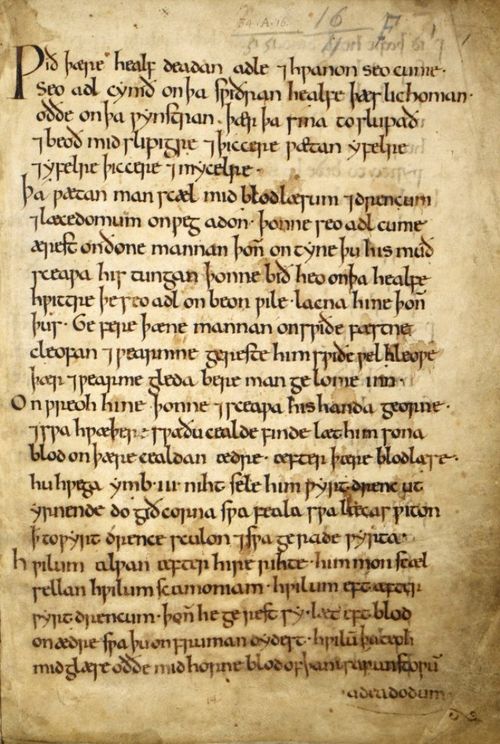 Ƿið þære healf deadan adle ⁊ hƿanon seo cume·
Seo adl cymð on þa sƿiðran healfe þæs lichoman·
oððe on þa ƿynstran· þær þa sina toslupað
⁊ beoð mid slipigre ⁊ þiccere ƿætan yfelre
⁊ yfelre þiccere ⁊ mycelre·
þa ƿætan man sceal mid blodlæsum ⁊ drencum
⁊ læcedomum onƿeg adon· þonne seo adl cume
ærest on ðone mannan þoñ ontyne þu his muð
sceaƿa his tungan þonne bið heo on þa healfe
hƿitre þe seo adl on beon ƿile· lacna hine þoñ
þus· Ge fere þæne mannan on sƿiðe fæstne
cleofan ⁊ ƿearmne gereste him sƿiðe ƿel hleoƿe
þær ⁊ ƿearme gleda bere man ge lome inn·
Onƿreoh hine þonne ⁊ sceaƿa his handa georne·
⁊ sƿa hƿæþere sƿa ðu cealde finde læt him sona
blod on þære cealdan ædre· æfter þære blodlæse·
hu hƿega ymb ·iii· niht sele him ƿyrt drenc ut
yrnende do gið corna sƿa feala sƿa læcas ƿiton
ꝥ to ƿyrt drence sculon ⁊ sƿa ge rade ƿyrta·
hƿilum alƿan æfter hire rihte· him mon sceal
sellan hƿilum scamoniam· hƿilum eft æfter
ƿyrt drencum· þoñ he ge rest sy· læt eft blod
on ædre sƿa þu on fruman dydest· hƿilū þu teoh
mid glæse oððe mid horne blod of þam